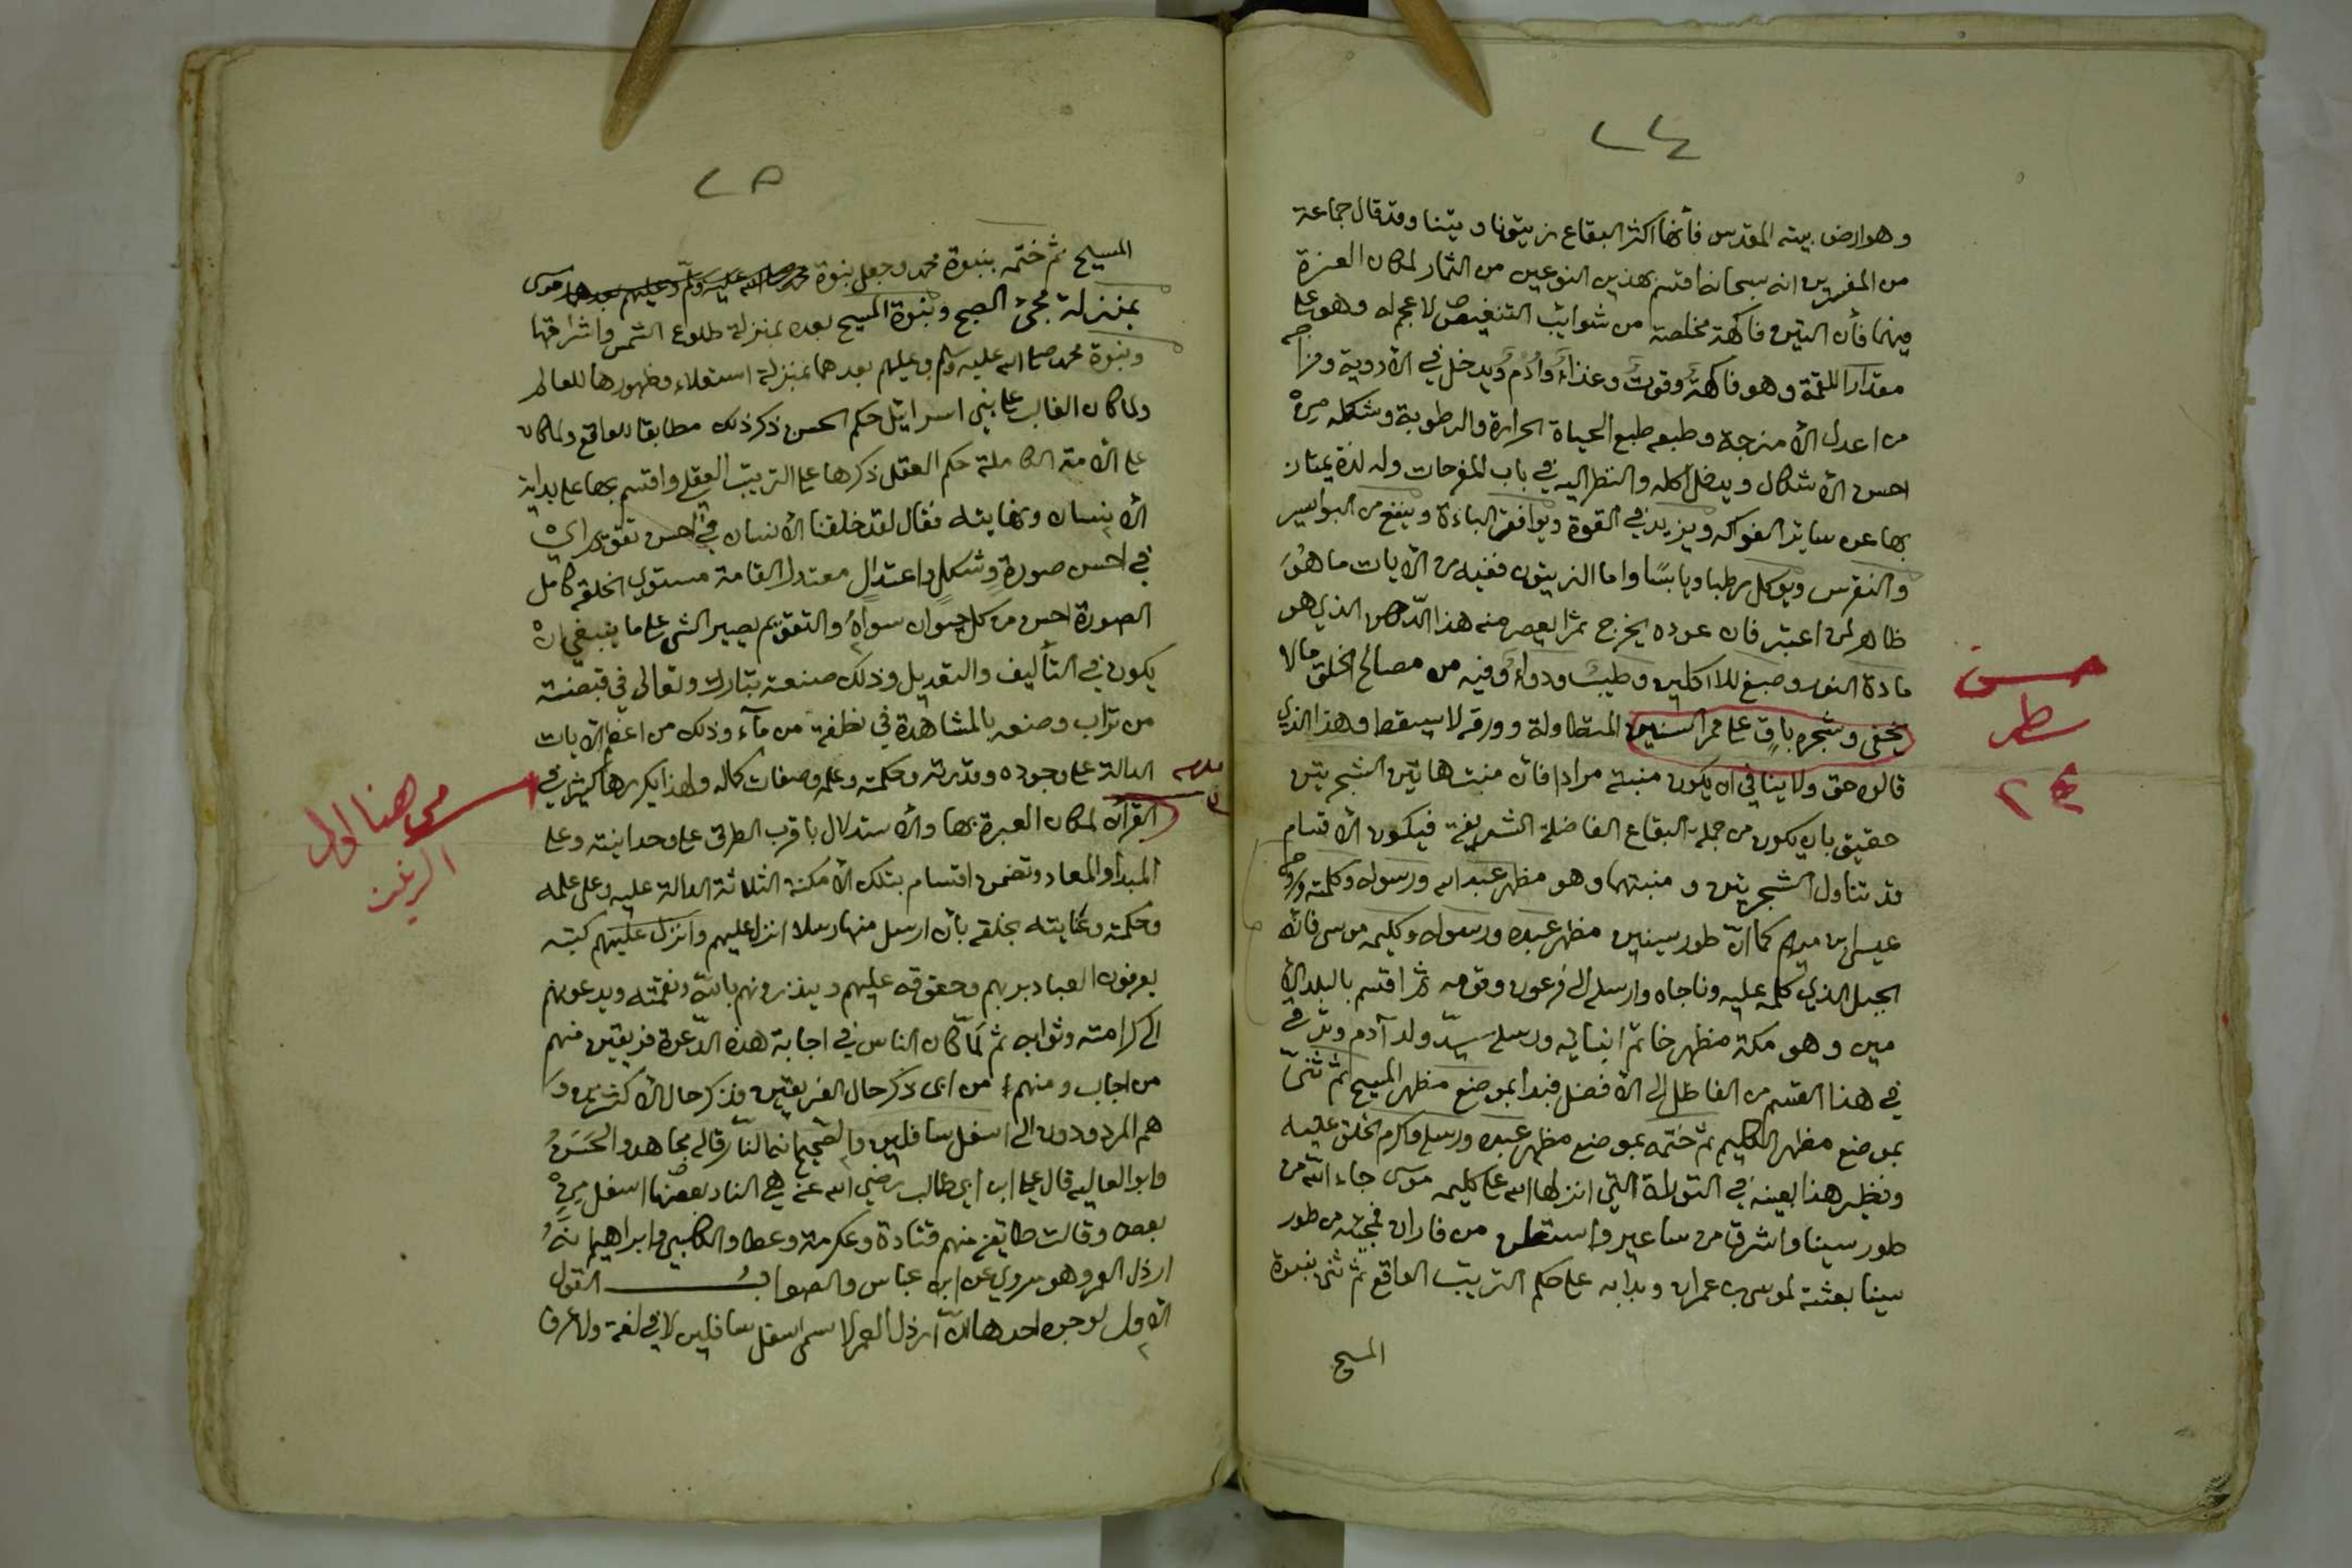 ٢٤
وهو ارض بيت المقدس فأنها اكثر البقاع زيتونا وتينا وقد قال جماعة
من المفسرين انه سبحانه اقسم بهذين النوعين من الثمار لمكان العزة
فيهما فأن التين فاكهة مخلصة من شوائب التنغيص لا عجم له وهو على
مقدار اللقمة وهو فاكهة وقوت وغذاء وادم ويدخل في الادوية ومزاجه
من اعدل الأمزجة وطبعه طبع الحياة الحرارة والرطوبة وشكله من
احسن الأشكال ويدخل اكله والنظر اليه في باب المفرحات وله لذة يمتاز
بها عن سائر الفواكه ويزيد في القوة ويوافق الباءة وينفع من البواسير
والنقرس ويوكل رطبا ويابسًا واما الزيتون ففيه من الأيات ما هو
ظاهر لمن اعتبر فان عوده يخرج ثمرا يعصر منه هذا الدّهن الذي هو
مادة النور وصبغ للاكلين وطيب ودواء وفيه من مصالح الخلق مالا
يخفى وشجره باق على ممر السنين المتطاولة وورقه لا يسقط وهذا الذي
قالوه حق ولا ينافي ان يكون منبته مرادا فأن منبت هاتين الشجرتين
حقيق بان يكون من جملة البقاع الفاضلة الشريفة فيكون الأقسام
قد تناول الشجرتين و منبتهما وهو مظهر عبد الله ورسوله وكلمته وروحه
عيسى ابن مريم كما انّ طور سينين مظهر عبده ورسوله وكليمه موسى فانّه
الجبل الذي كلمه عليه وناجاه وارسله الى فرعون وقومه ثم اقسم بالبلد الأ
مين وهو مكة مظهر خاتم انبيائه ورسله سيّد ولد آدم وترقى
في هذا القسم من الفاضل الى الأفضل فبدا بموضع مظهر المسيح ثم ثنّى
بموضع مظهر الكليم ثم ختمه بموضع مظهر عبده ورسله واكرم الخلق عليه
ونظير هذا بعينه في التوراة التي انزلها الله على كليمه موسى جاء الله من
طور سينا واشرق من ساعير واستعلن من فاران فمجيئه من طور
سينا بعثته لموسى بن عمران وبدابه على حكم الترتيب الواقع ثم ثنى بنبوة
المسيح
حسن
سطر
٢٤
٢٥
المسيح ثم ختمه بنبوة محمد وجعل بنوة محمد صلى الله عليه وسلم وعليهم بعدهما موسى
بمنزلة مجئ الصبح ونبوة المسيح بعده بمنزلة طلوع الشمس واشراقها
ونبوة محمد صلى الله عليه وسلم وعليهم بعدهما بمنزلة استعلاء وظهورها للعالم
ولما كان الغالب على بني اسرائيل حكم الحس ذكر ذلك مطابقا للواقع ولما كان
على الأمة الكاملة حكم العقل ذكرها على الترتيب العقلي واقسم بها على بداية
الأنسان ونهايته فقال لقد خلقنا الأنسان في احسن تقويم اي
في احسن صورة وشكل واعتدال معتدل القامة مستوي الخلقة كامل
الصورة احسن من كل حيوان سواه والتقويم تصيير الشي على ما ينبغي ان
يكون في التأليف والتعديل وذلك صنعة تبارك وتعالى في قبضة
من تراب وصنعه بالمشاهدة في نطفة من مآء وذلك من اعظم الأيات
الدالة على وجوده وقدرته وحكمته وعلمه وصفات كماله ولهذا يكررها كثيرا في
القرآن لمكان العبرة بها والأستدلال باقرب الطرق على وحدانيته وعلى
المبدأ والمعاد وتضمن اقسام بتلك الأمكنة الثلاثة الدالة عليه وعلى علمه
وحكمته وعنايته بخلقه بأن ارسل منها رسلا انزل عليهم وانزل عليهم كتبه
يعرفون العباد بربهم وحقوقه عليهم وينذرونهم بالله ونقمته ويدعونهم
الى كرامته وثوابه ثم لمّا كان الناس في اجابة هذه الدّعوة فريقين منهم
من اجاب ومنهم من ابى ذكر حال الفريقين فذكر حال الأكثرين و
هم المردودون الى اسفل سافلين والصحيح انها النار قاله مجاهد والحسن
وابو العاليه قال علي ابن ابي طالب رضي الله عنه هي النار بعضها اسفل من
بعض وقالت طايفة منهم قتادة وعكرمة وعطا والكلبي وابراهيم انه
ارذل العمر وهو مروي عن ابن عباس والصواب القول
الأول لوجوه احدها انّ ارذل العمر لا يسمى اسفل سافلين لا في لغة ولا عرف
من هنا اول